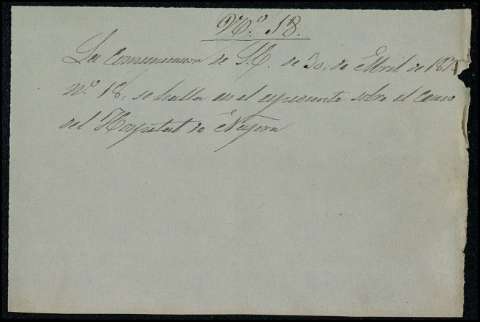 N.º 18.
La comunicacion de S.E. de 30 de Abril de 187
nº 18. se halla en el expediente sobre el censo
del Hospital de Nájera